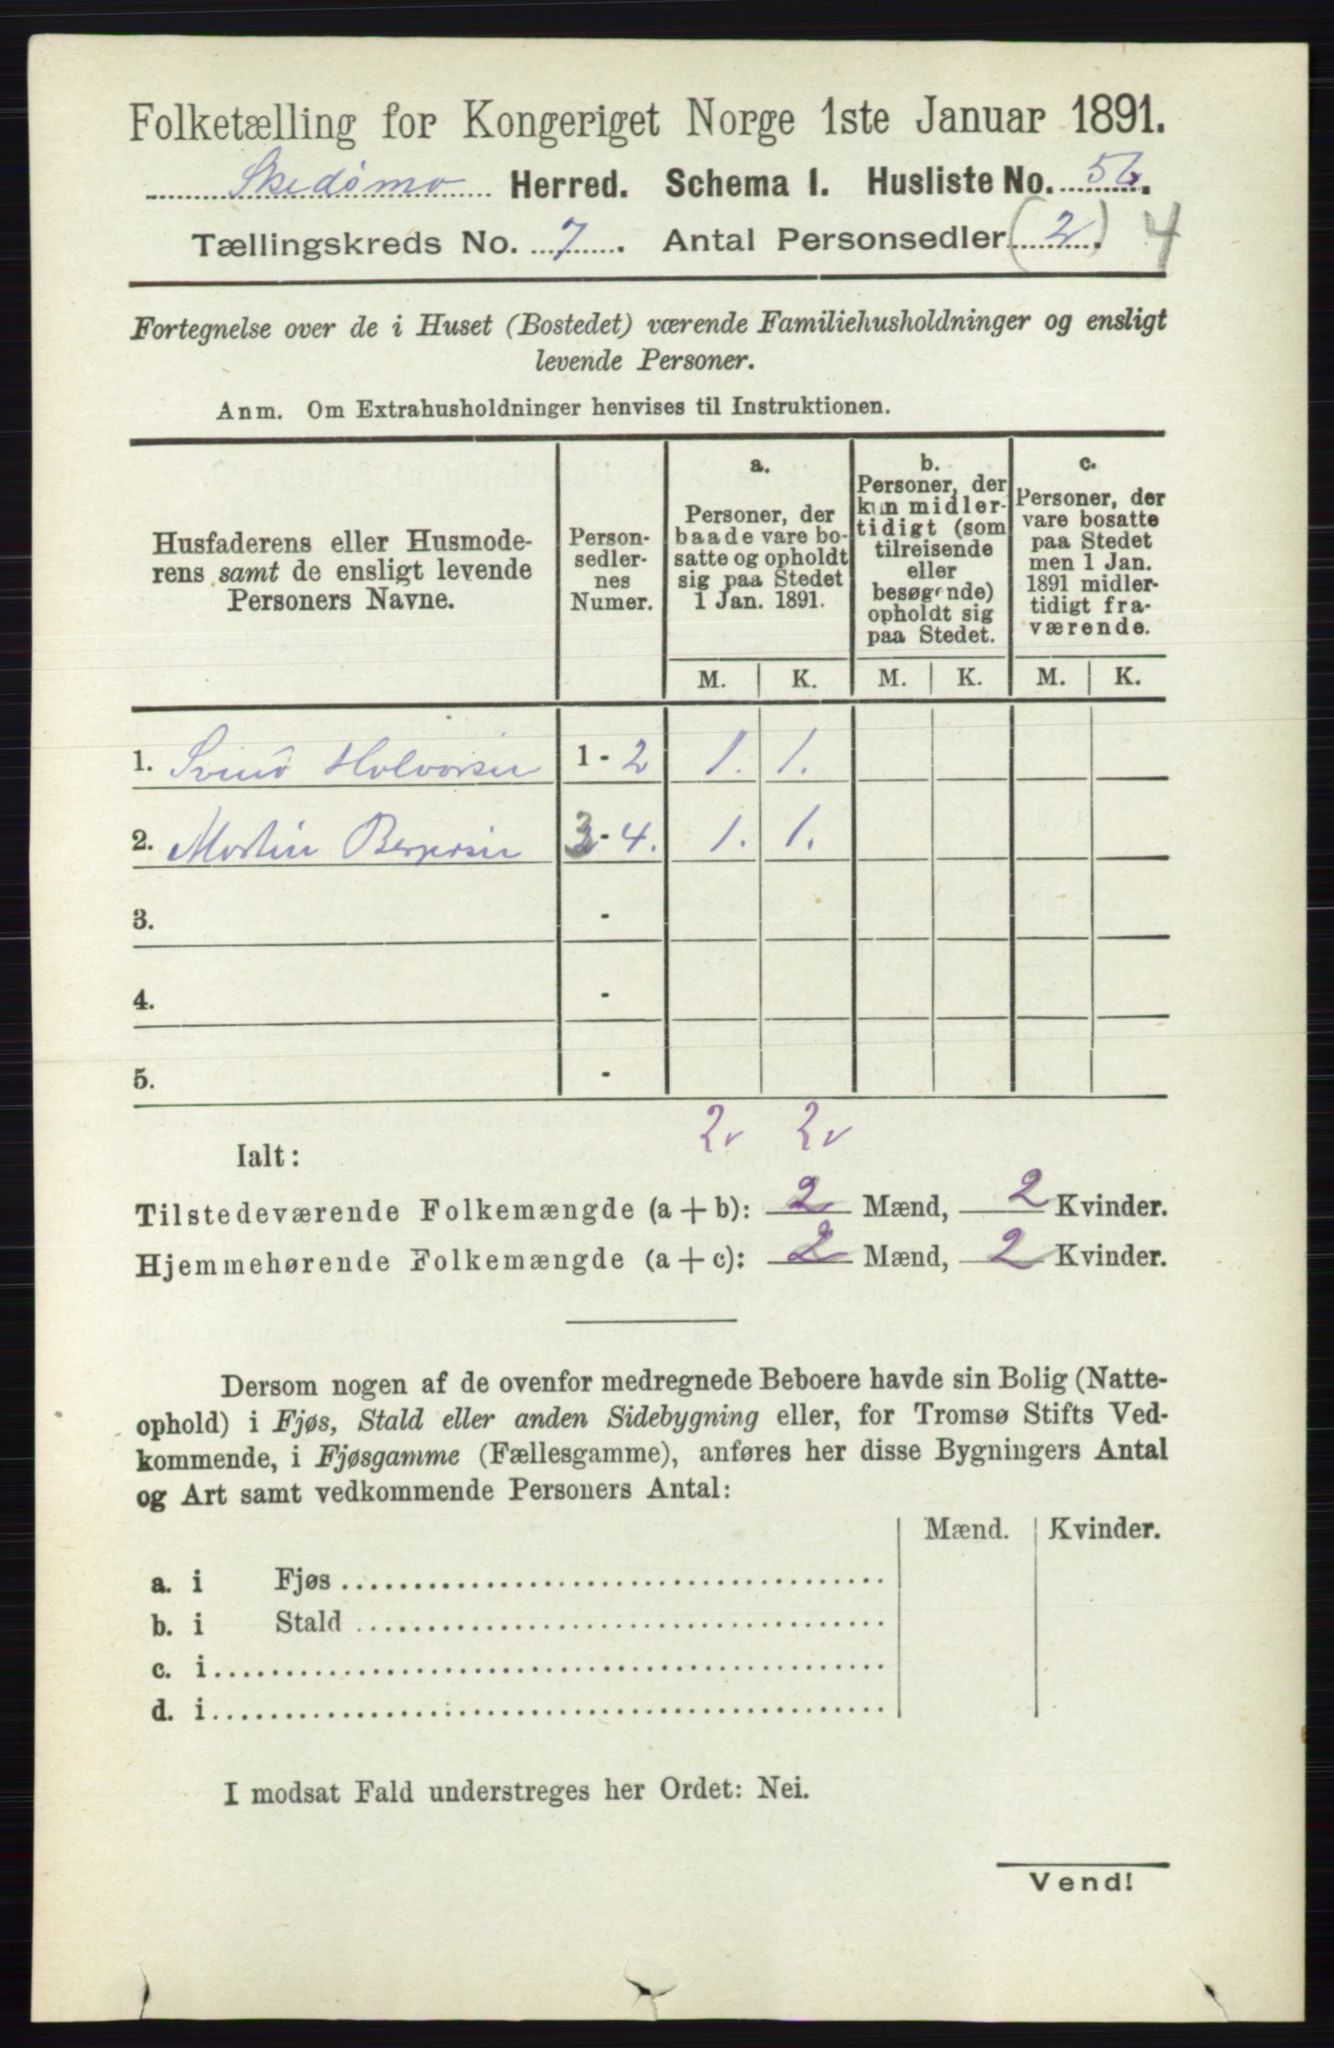 Folketælling for Kongeriget Norge 1ste Januar 1891.
Skedsmo Herred. Schema I. Husliste No. 56.
Tællingskreds No. 7. Antal Personsedler (2). 4
Fortegnelse over de i Huset (Bostedet) værende Familiehusholdninger og ensligt
levende Personer.
Anm. Om Extrahusholdninger henvises til Instruktionen.
Husfaderens eller Husmode-
rens samt de ensligt levende
Personers Navne.
Person-
sedler-
nes
Numer.
a.
Personer, der
baade vare bo-
satte og opholdt
sig paa Stedet
1 Jan. 1891.
b.
Personer, der
kun midler-
tidigt (som
tilreisende
eller
besøgende)
opholdt sig
paa Stedet.
c.
Personer, der
vare bosatte
paa Stedet
men 1 Jan.
1891 midler-
tidigt fra-
værende.
M. K. M. K. M. K.
1. Halvorsen 1 - 2 1. 1.
2. Martin 3 - 4. 1. 1.
3. -
4. -
5. -
Ialt: 2 2
Tilstedeværende Folkemængde (a + b): 2 Mænd, 2 Kvinder.
Hjemmehørende Folkemængde (a + c): 2 Mænd, 2 Kvinder.
Dersom nogen af de ovenfor medregnede Beboere havde sin Bolig (Natte-
ophold) i Fjøs, Stald eller anden Sidebygning eller, for Tromsø Stifts Ved-
kommende, i Fjøsgamme (Fællesgamme), anføres her disse Bygningers Antal
og Art samt vedkommende Personers Antal:
Mænd. Kvinder.
a. i Fjøs
b. i Stald
c. i
d. i
I modsat Fald understreges her Ordet: Nei.
Vend!